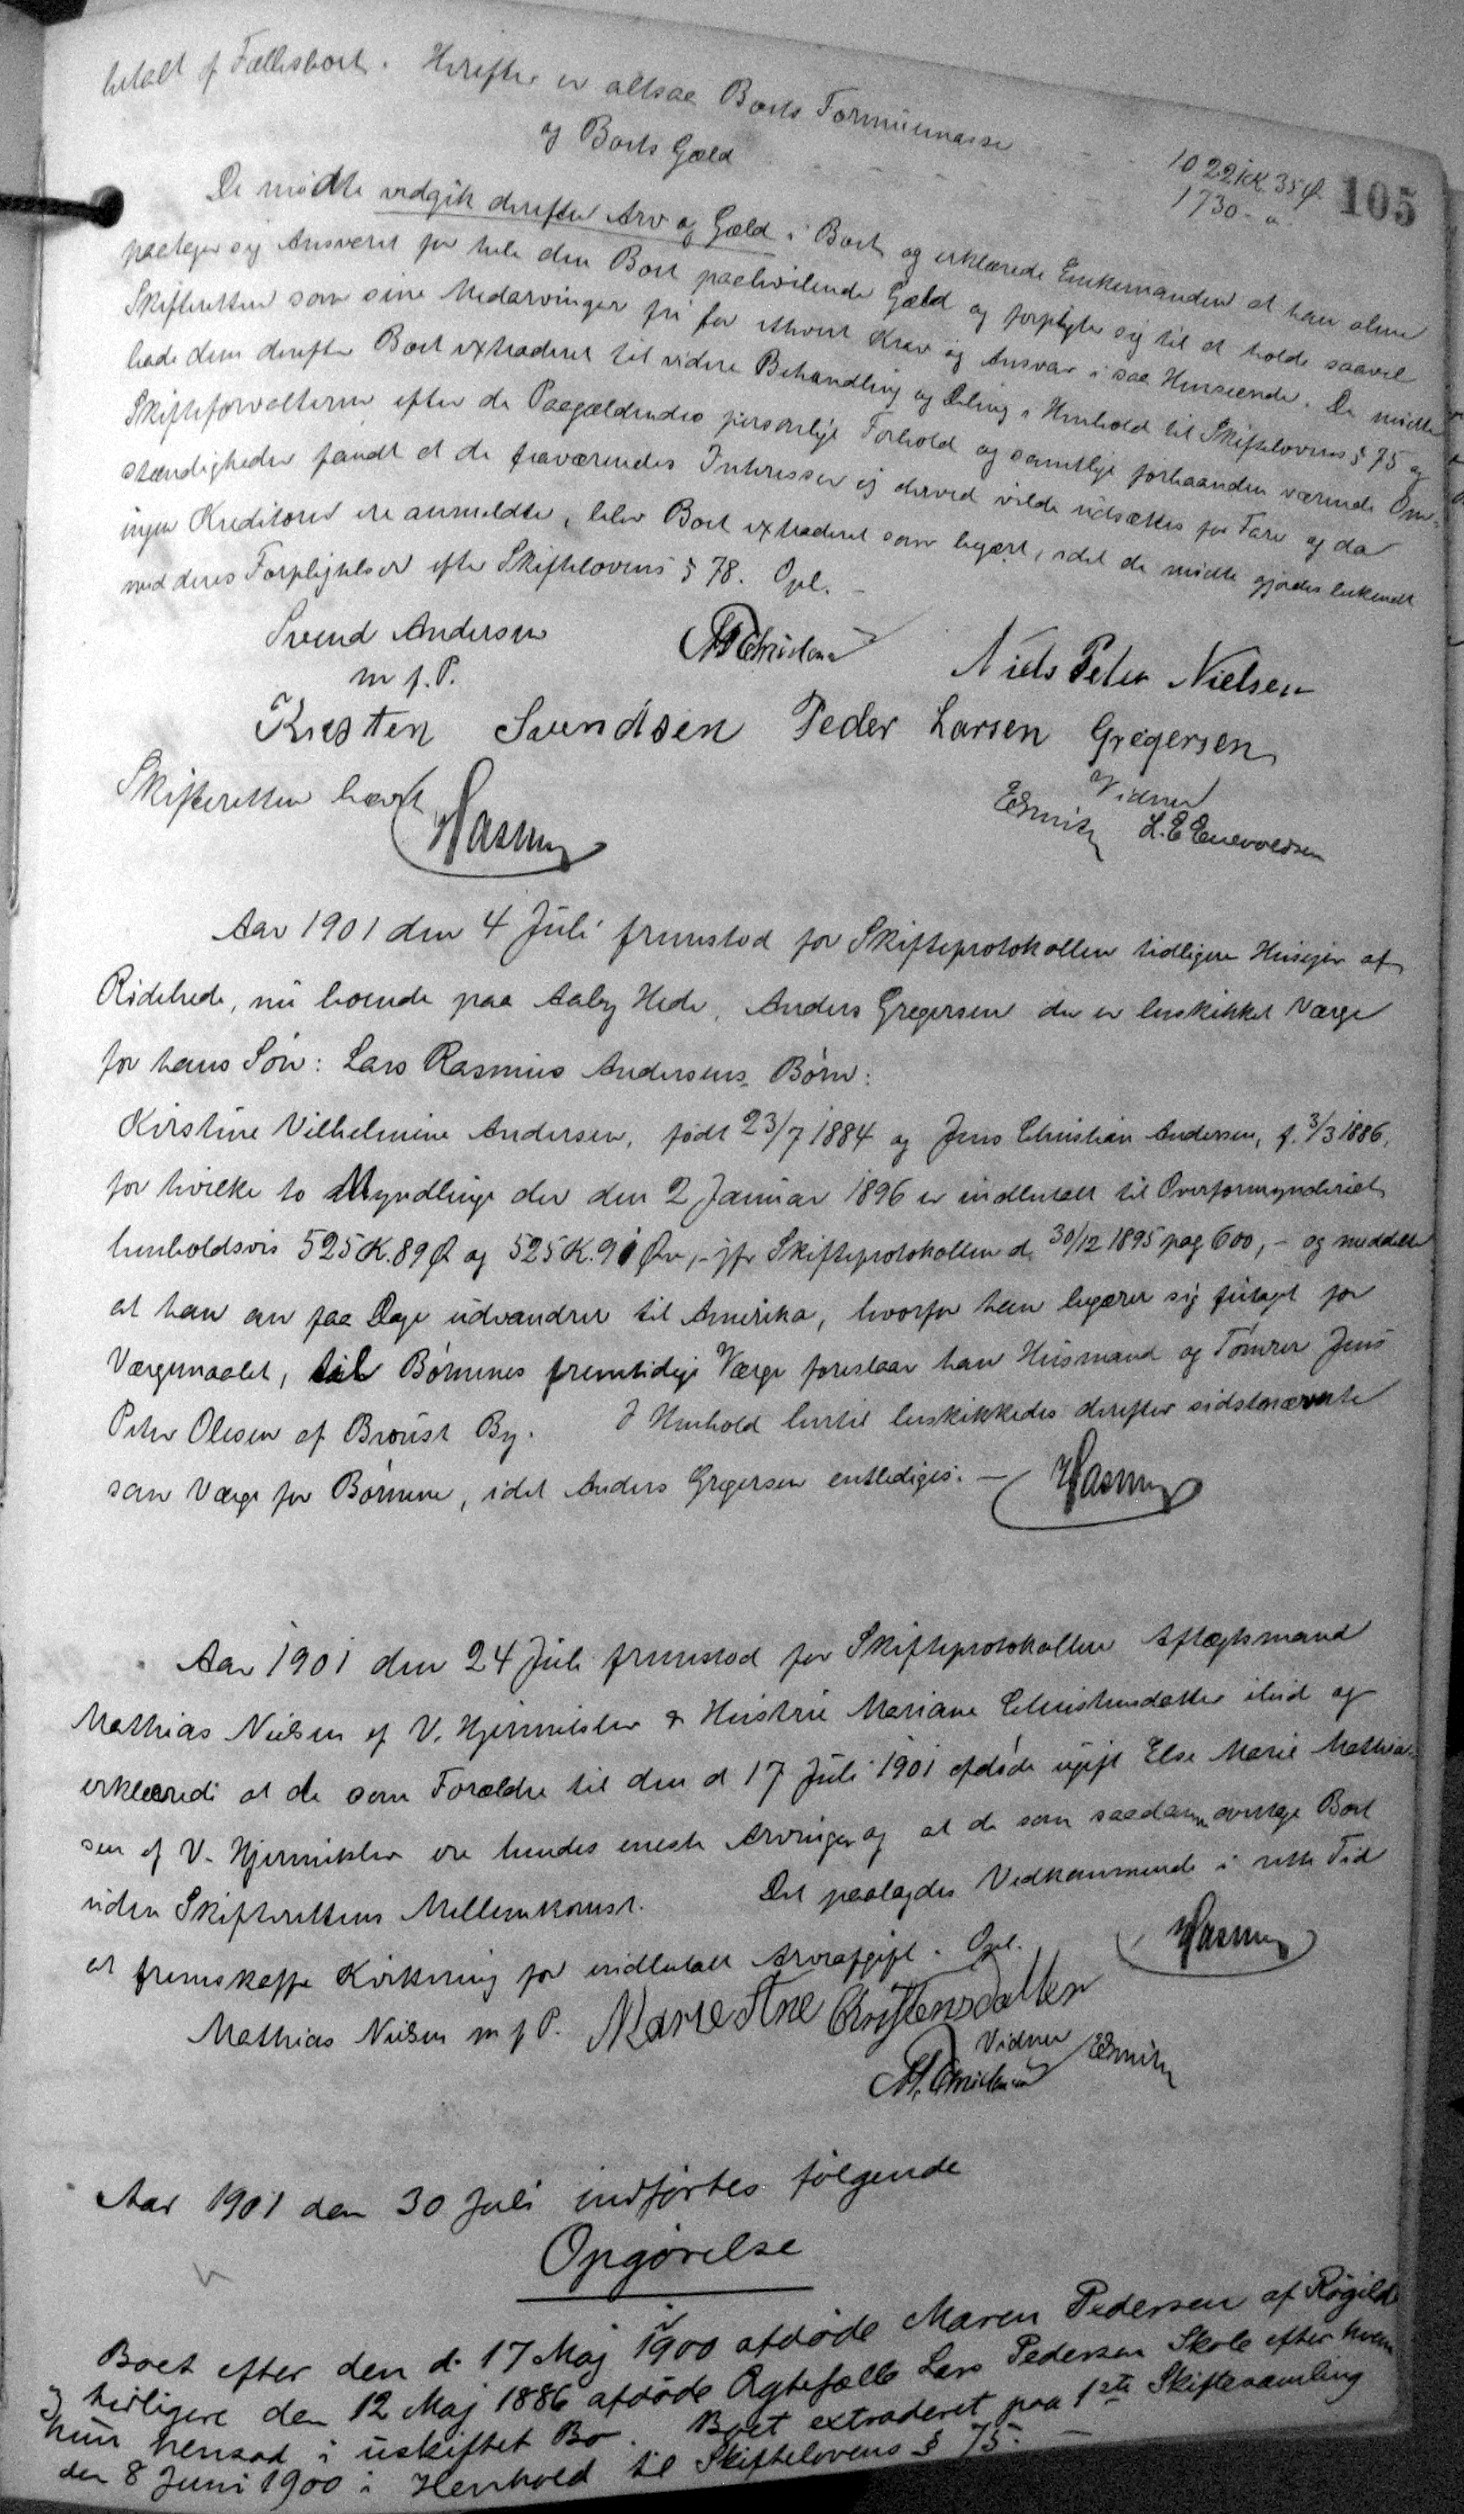 betalt af Fællesboet. Herefter er altsaa Boets Formuemasse 1022 Kr. 35 Ø. 105
og Boets Gæld 1730 - "
De mødte vedgik derefter Arv og Gæld i Boet og erklærede Enkemanden at han alene
paatager sig Ansvaret for hele den Boet paahvilende Gæld og forpligter sig til at holde saavel
Skifteretten som sine Medarvinger fri for ethvert Krav og Ansvar i saa Henseende. De mødte
bade dem derefter Boet extraderet til videre Behandling og Deling i Henhold til Skiftelovens § 75 og
Skifteforvalteren efter de Paagældendes personlige Forhold og samtlige forhaanden værende Om-
stændigheder fandt at de fraværendes Interesser ej derved vilde udsættes for Fare og da
ingen Kreditorer ere anmeldte, blev Boet extraderet som begært, idet de mødte gjordes bekendt
med deres Forpligtelser efter Skiftelovens § 78. Opl. -
Svend Andersen
m f. P.
Niels Peter Nielsen
Kresten Svendsen Peder Larsen Gregersen
Skifteretten hævet
Vidner
L. E. Enevoldsen
Aar 1901 den 4 Juli fremstod for Skifteprotokollen tidligere Husejer af
Ridehede, nu boende paa Aaby Hede, Anders Gregersen der er beskikket Værge
for hans Søn: Lars Rasmus Andersens Børn:
Kirstine Vilhelmine Andersen, født 23/7 1884 og Jens Christian Andersen, f. 3/3 1886,
for hvilke to Myndlinge der den 2 Januar 1896 er indbetalt til Overformynderiet
henholdsvis 525 K. 89 Ø og 525 K. 90 Øre, - jfr Skifteprotokollen d. 30/12 1895 pag 600, - og meddelte
at han om faa Dage udvandrer til Amerika, hvorfor han begærer sig fritaget for
Værgemaalet, til Børnenes fremtidige Værge foreslaar han Husmand og Tømrer Jens
Peter Olesen af Brøust By. I Henhold hertil beskikkedes derefter sidstnævnte
som Værge for Børnene, idet Anders Gregersen entlediges. -
Aar 1901 den 24 Juli fremstod for Skifteprotokollen Aftægtsmand
Mathias Nielsen af V. Hjermitslev & Hustru Mariane Christensdatter ibid og
erklærede at de som Forældre til den d 17 Juli 1901 afdøde ugift Else Marie Mathia-
sen af V. Hjermitslev ere hendes eneste Arvinger og at de som saadanne overtage Boet
uden Skifterettens Mellemkomst. Det paalagdes Vedkommende i rette Tid
at fremskaffe Kvittering for indbetalt Arveafgift. Opl.
Mathias Nielsen m f P. Marie Ane Christensdatter
Vidner
Aar 1901 den 30 Juli indførtes følgende
Opgørelse
i
Boet efter den d. 17 Maj 1900 afdøde Maren Pedersen af Røgild
og tidligere den 12 Maj 1886 afdøde Ægtefælle Lars Pedersen Skole efter hvem
hun hensad i uskiftet Bo. Boet extraderet paa 1ste Skiftesamling
den 8 Juni 1900 i Henhold til Skiftelovens § 75. -